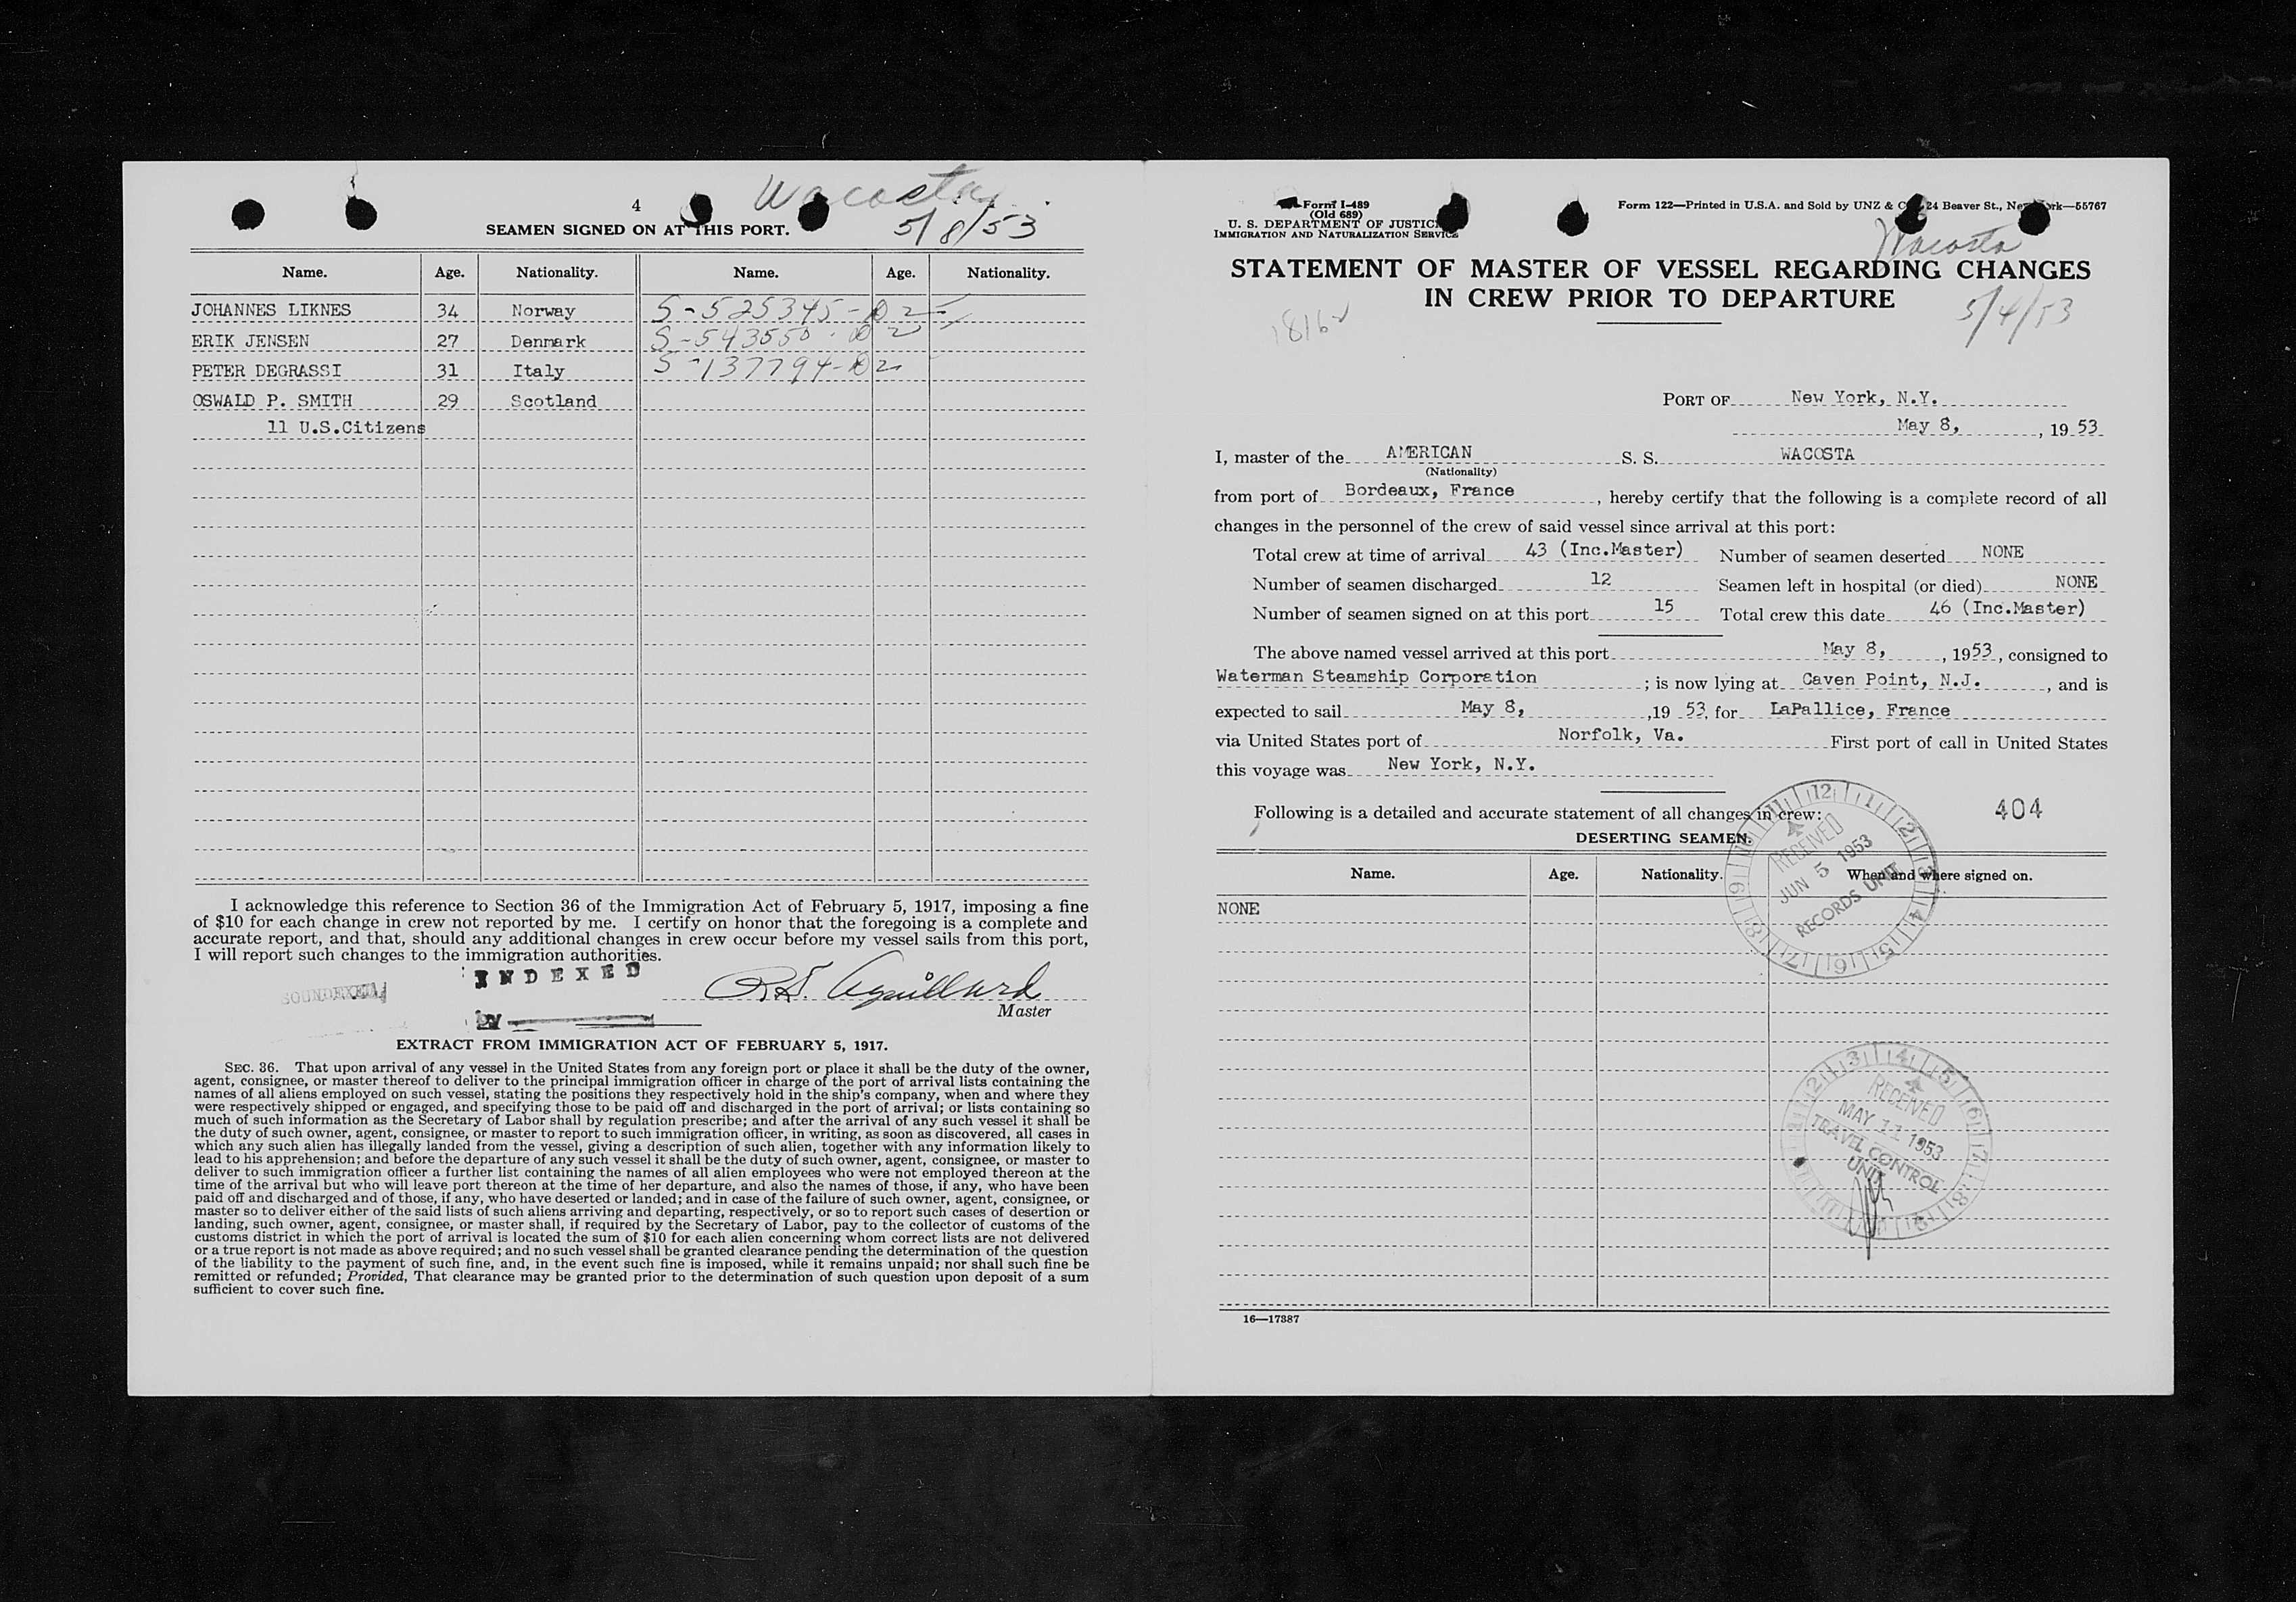 Wacosta
4
5/8/53
SEAMEN SIGNED ON AT THIS PORT.
Name. Age. Nationality. Name. Age. Nationality.
JOHANNES LIKNES 34 Norway S-525345-D2
ERIK JENSEN 27 Denmark S-543550-D2
PETER DEGRASSI 31 Italy S-137794-D2
OSWALD P. SMITH 29 Scotland
11 U.S.Citizens
I acknowledge this reference to Section 36 of the Immigration Act of February 5, 1917, imposing a fine
of $10 for each change in crew not reported by me. I certify on honor that the foregoing is a complete and
accurate report, and that, should any additional changes in crew occur before my vessel sails from this port,
I will report such changes to the immigration authorities.
INDEXED
SOUNDEXED
BY
Master
EXTRACT FROM IMMIGRATION ACT OF FEBRUARY 5, 1917.
SEC. 36. That upon arrival of any vessel in the United States from any foreign port or place it shall be the duty of the owner,
agent, consignee, or master thereof to deliver to the principal immigration officer in charge of the port of arrival lists containing the
names of all aliens employed on such vessel, stating the positions they respectively hold in the ship's company, when and where they
were respectively shipped or engaged, and specifying those to be paid off and discharged in the port of arrival; or lists containing so
much of such information as the Secretary of Labor shall by regulation prescribe; and after the arrival of any such vessel it shall be
the duty of such owner, agent, consignee, or master to report to such immigration officer, in writing, as soon as discovered, all cases in
which any such alien has illegally landed from the vessel, giving a description of such alien, together with any information likely to
lead to his apprehension; and before the departure of any such vessel it shall be the duty of such owner, agent, consignee, or master to
deliver to such immigration officer a further list containing the names of all alien employees who were not employed thereon at the
time of the arrival but who will leave port thereon at the time of her departure, and also the names of those, if any, who have been
paid off and discharged and of those, if any, who have deserted or landed; and in case of the failure of such owner, agent, consignee, or
master so to deliver either of the said lists of such aliens arriving and departing, respectively, or so to report such cases of desertion or
landing, such owner, agent, consignee, or master shall, if required by the Secretary of Labor, pay to the collector of customs of the
customs district in which the port of arrival is located the sum of $10 for each alien concerning whom correct lists are not delivered
or a true report is not made as above required; and no such vessel shall be granted clearance pending the determination of the question
of the liability to the payment of such fine, and, in the event such fine is imposed, while it remains unpaid; nor shall such fine be
remitted or refunded; Provided, That clearance may be granted prior to the determination of such question upon deposit of a sum
sufficient to cover such fine.
Form I-489
(Old 689)
U. S. DEPARTMENT OF JUSTICE
IMMIGRATION AND NATURALIZATION SERVICE
Form 122—Printed in U.S.A. and Sold by UNZ & Co., 24 Beaver St., New York—55767
Wacosta
STATEMENT OF MASTER OF VESSEL REGARDING CHANGES
IN CREW PRIOR TO DEPARTURE
5/4/53
PORT OF New York, N.Y.
May 8, , 19 53
I, master of the AMERICAN S. S. WACOSTA
(Nationality)
from port of Bordeaux, France , hereby certify that the following is a complete record of all
changes in the personnel of the crew of said vessel since arrival at this port:
Total crew at time of arrival 43 (Inc.Master) Number of seamen deserted NONE
Number of seamen discharged 12 Seamen left in hospital (or died) NONE
Number of seamen signed on at this port 15 Total crew this date 46 (Inc.Master)
The above named vessel arrived at this port May 8, , 1953 , consigned to
Waterman Steamship Corporation ; is now lying at Caven Point, N.J. , and is
expected to sail May 8, ,19 53, for LaPallice, France
via United States port of Norfolk, Va. First port of call in United States
this voyage was New York, N.Y.
Following is a detailed and accurate statement of all changes in crew:
404
DESERTING SEAMEN.
Name. Age. Nationality. When and where signed on.
NONE
RECEIVED
JUN 5 1953
RECORDS UNIT
RECEIVED
MAY 11 1953
TRAVEL CONTROL
UNIT
16—17387